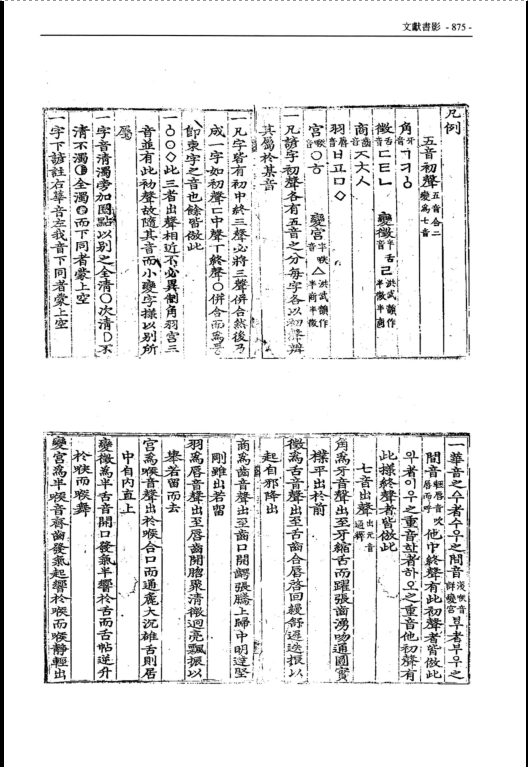 文獻書影 - 875 -
凡例
五音初聲 五音合二變爲七音
角 牙音 ㄱㅋㆁ
徵 舌音 ㄷㅌㄴ 變徵 半舌音 ㄹ 洪武韻作半徵半商
商 齒音 ㅈㅊㅅ
羽 脣音 ㅂㅍㅁㅇ
宮 喉音 ㅇㆆ 變宮 半喉音 △ 洪武韻作半商半徵
一凡諺字初聲各有五音之分每字各以初聲辨
其屬於某音
一凡字皆有初中終三聲必將三聲併合然後乃
成一字如初聲ㄷ中聲ㅜ終聲ㆁ併合而爲
卽東字之音也餘皆倣此
一ㆁㅇ◇此三者出聲相近不必異制角羽宮三
音並有此初聲故隨其音而小變字樣以別所
屬
一字音淸濁旁加圈點以別之全淸○次淸 不
淸不濁 全濁 而下同者蒙上空
一字下諺註右華音左我音下同者蒙上空
一華音之 者수우之間音 者부우之
間音 他中終聲有此初聲者皆倣此
者이우之重音 者하오之重音他初聲有
此樣終聲者皆倣此
七音出聲
角爲牙音聲出至牙縮舌而躍張齒湧吻通圓實
樸平出於前
徵爲舌音聲出至舌齒合脣啓回緩舒遲迭振以
起自邪降出
商爲齒音聲出至齒口開齶張騰上歸中明達堅
剛雖出若留
羽爲脣音聲出至脣齒開 聚淸徵迥亮飄振以
集若留而去
宮爲喉音聲出於喉合口而通麤大沉雄舌則居
中自內直上
變徵爲半舌音開口發氣半響於舌而舌帖逆升
於喉而喉舞
變宮爲半喉音齊齒發氣起響於喉而喉靜輕出